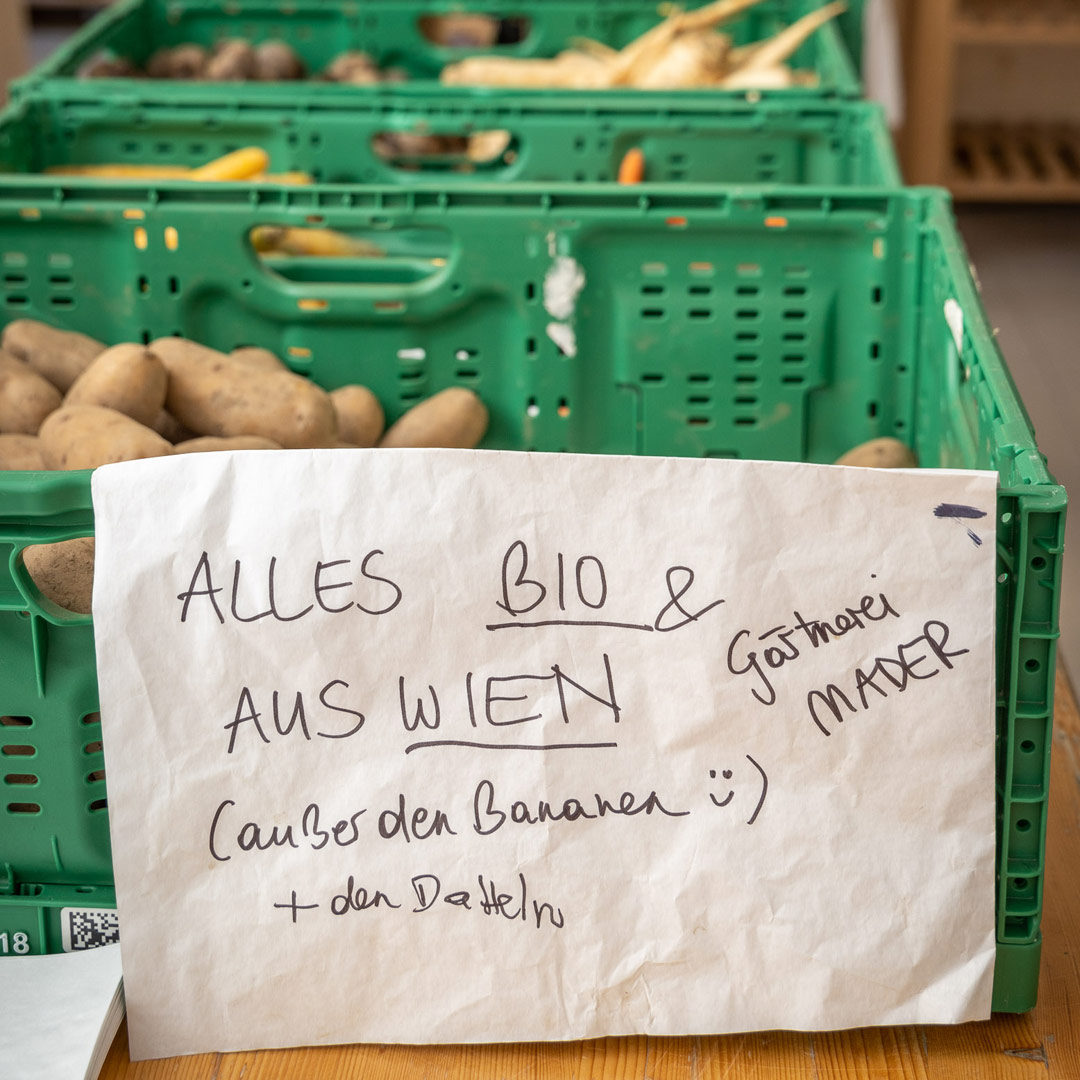 ALLES BIO &
AUS WIEN
(außer den Bananen :))
+ den Datteln
Gärtnerei
MADER
18